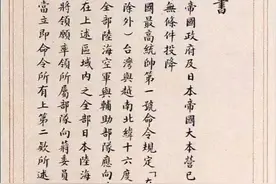 書
帝國政府及日本帝國大本營已
無條件投降
國最高統帥第一號命令規定「在
除外)台灣與越南北緯十六度
全部陸海空軍與輔助部隊應向
在上述區域內之全部日本陸海
將領願率領所屬部隊向蔣委員
當立即命令所有上第二款所述